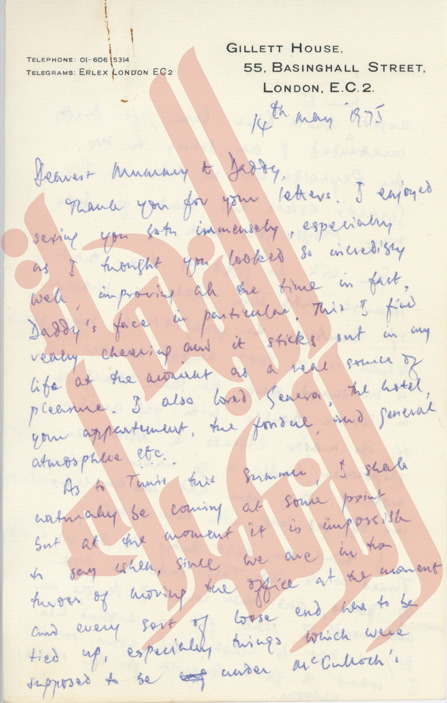 GILLETT HOUSE,
55, BASINGHALL STREET,
LONDON, E.C.2.
TELEPHONE: 01-606 5314
TELEGRAMS: ERLEX LONDON EC2
14th May 1975
Dearest Mummy & Daddy,
Thank you for your letters. I enjoyed
seeing you both immensely, especially
as I thought you looked so incredibly
well, improving all the time in fact,
Daddy's face in particular. This I find
really cheering and it sticks out in my
life at the moment as a real source of
pleasure. I also loved Geneva, the hotel,
your appartement, the fondue, and general
atmosphere etc.
As to Tunis this summer, I shall
naturally be coming at some point
but at the moment it is impossible
to say when, since we are in the
throes of moving the office at the moment
and every sort of loose end has to be
tied up, especially things which were
supposed to be under McCulloch's